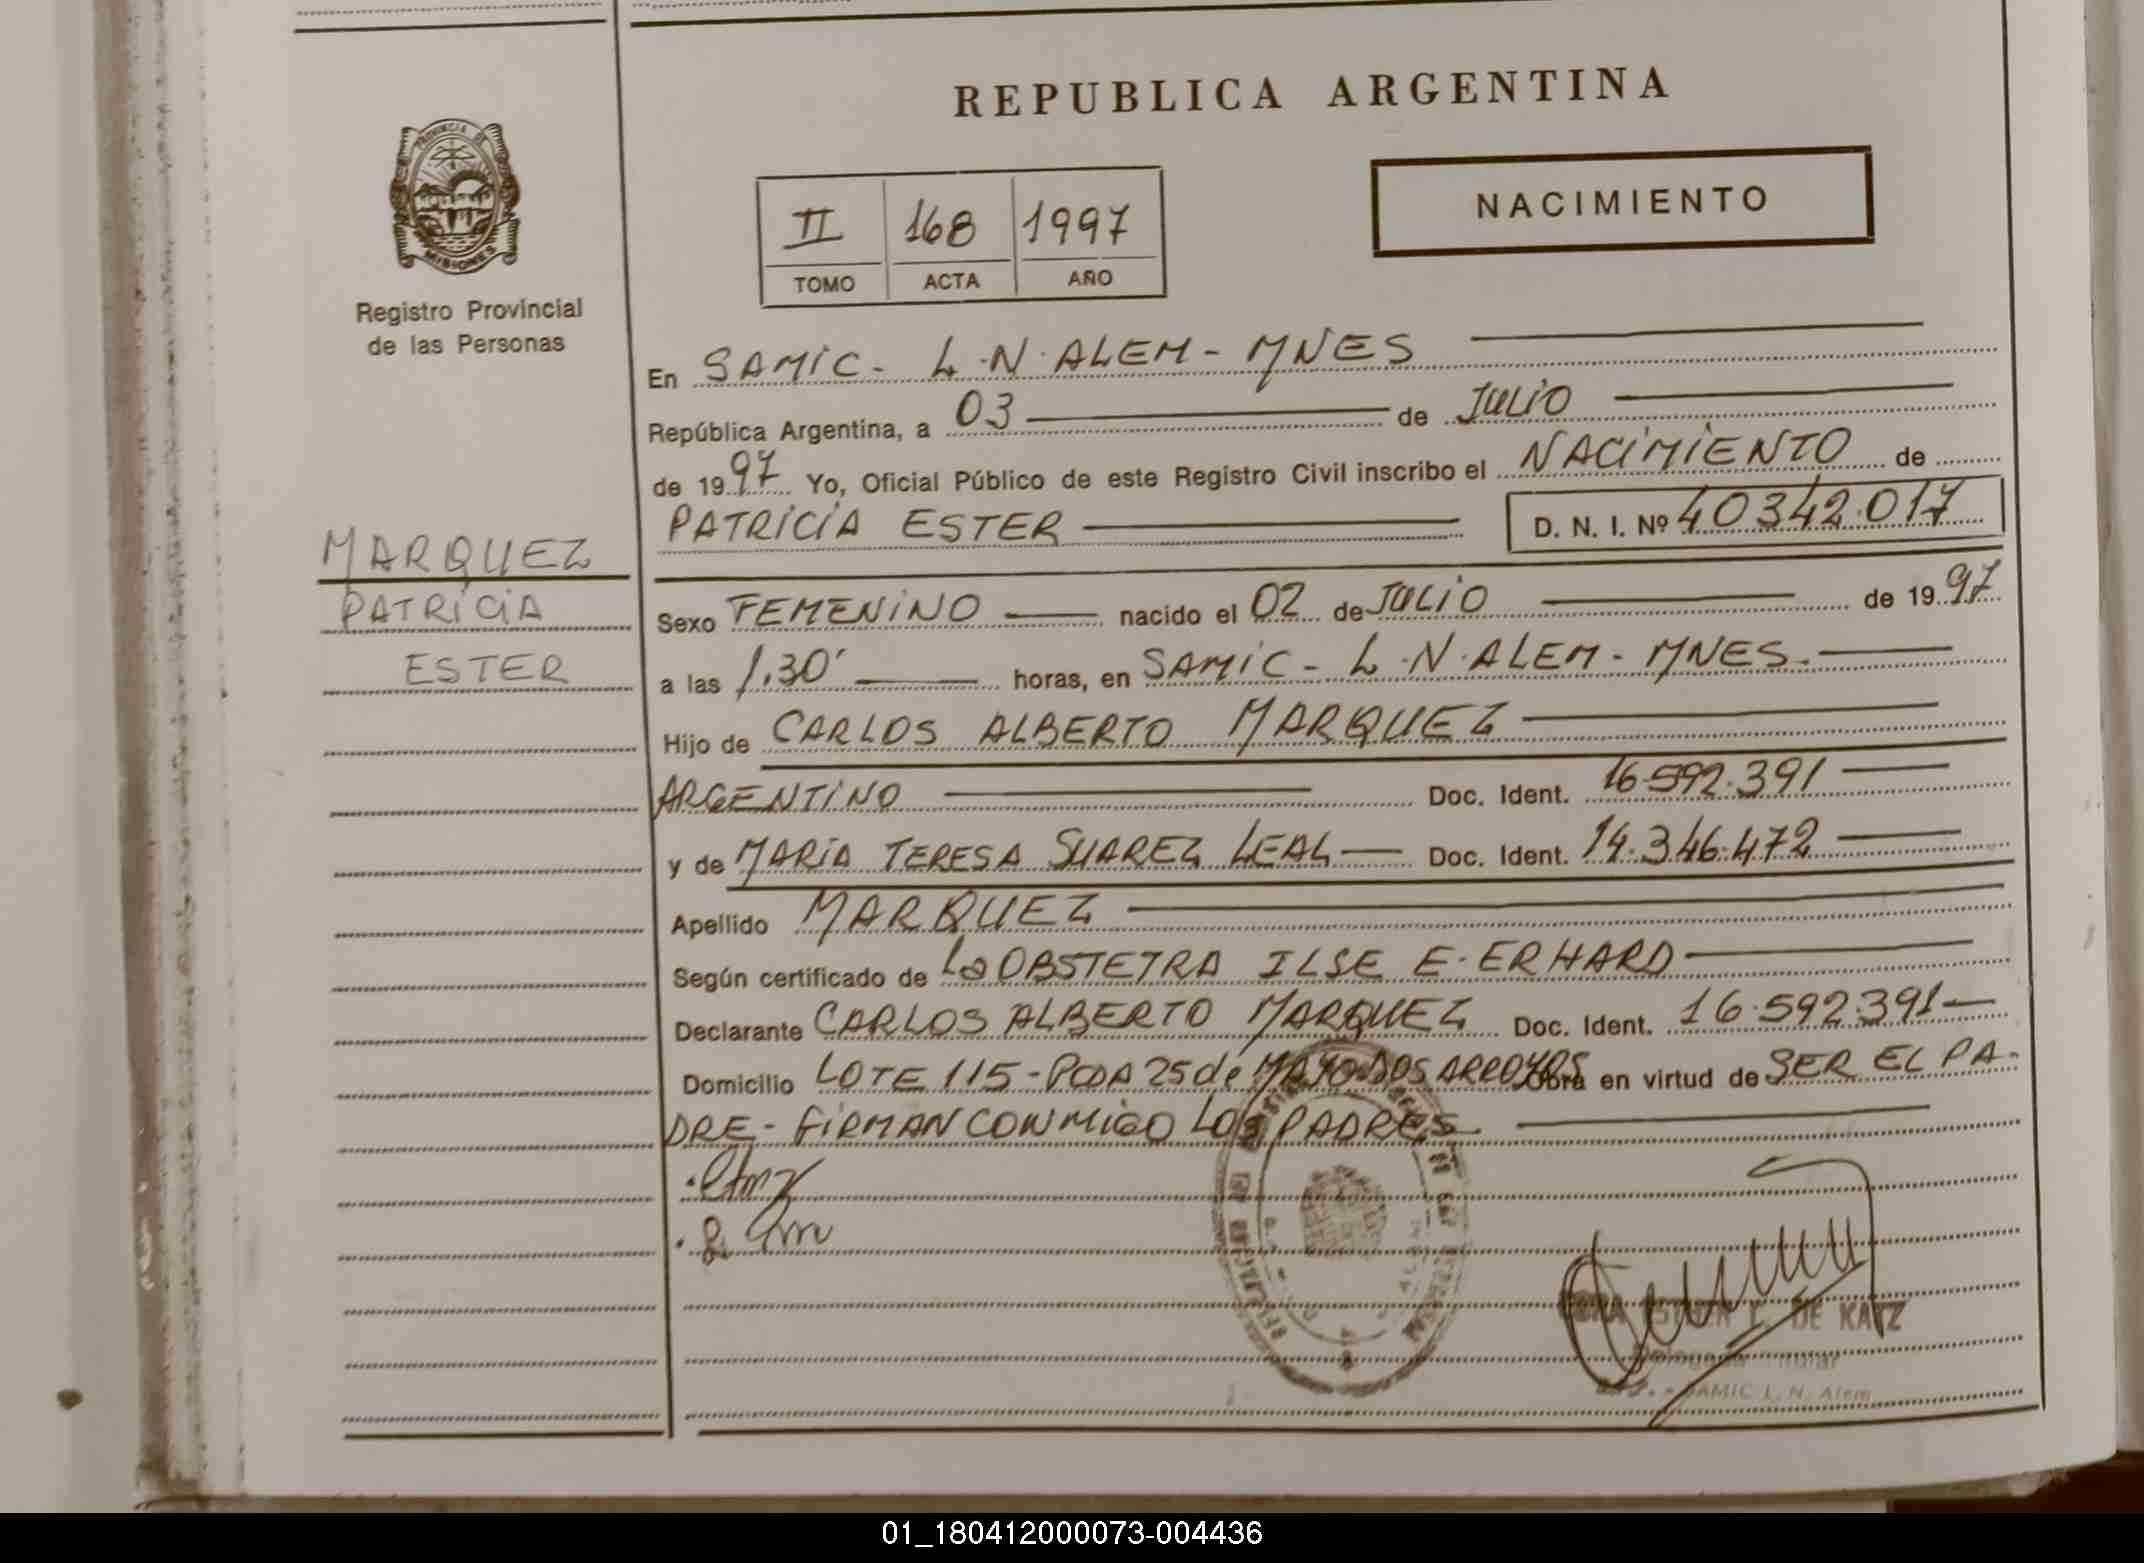 REPUBLICA ARGENTINA
NACIMIENTO
II 168 1997
TOMO ACTA AÑO
PROVINCIA DE
MISIONES
Registro Provincial
de las Personas
En SAMIC - L.N. ALEM - MNES
República Argentina, a 03 de JULIO
de 1997 Yo, Oficial Público de este Registro Civil inscribo el NACIMIENTO de
PATRICIA ESTER D. N. I. Nº 40342.017
MARQUEZ
PATRICIA
ESTER
Sexo FEMENINO nacido el 02 de JULIO de 1997
a las 1.30' horas, en SAMIC - L.N. ALEM - MNES.
Hijo de CARLOS ALBERTO MARQUEZ
ARGENTINO Doc. Ident. 16.592.391
y de MARIA TERESA SUAREZ LEAL Doc. Ident. 14.346.472
Apellido MARQUEZ
Según certificado de La OBSTETRA ILSE E. ERHARD
Declarante CARLOS ALBERTO MARQUEZ Doc. Ident. 16.592.391
Domicilio LOTE 115 - PCDA 25 de MAYO-DOS ARROYOS Obra en virtud de SER EL PA-
DRE - FIRMAN CONMIGO LOS PADRES
DE KATZ
Titular
SAMIC L. N. Alem
01_180412000073-004436